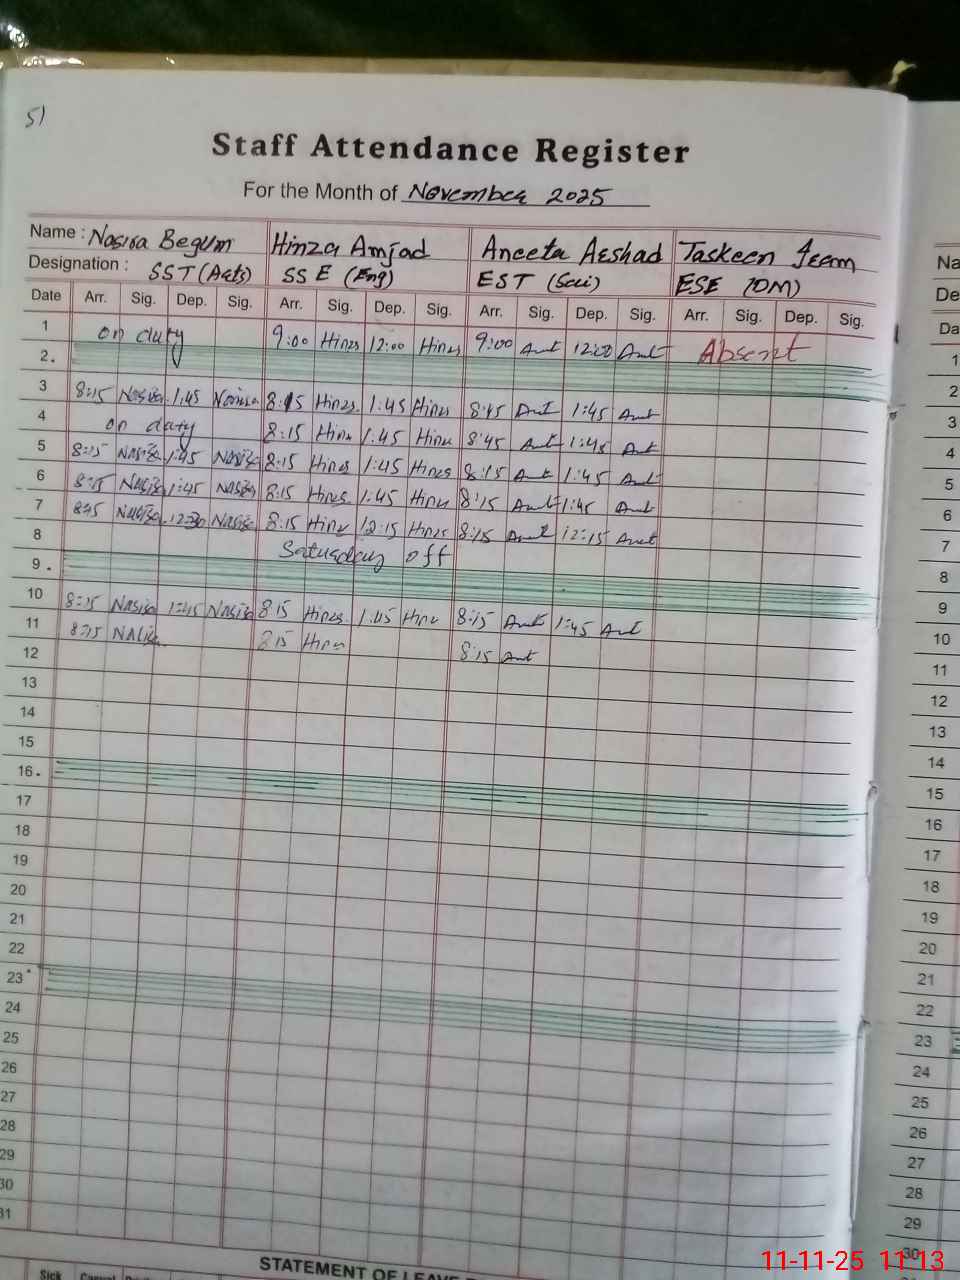 51
Staff Attendance Register
For the Month of November 2025
Name : Nasira Begum Hinza Amjad Aneeta Arshad Taskeen
Designation : SST (Arts) SSE (Eng) EST (Sci) ESE (DM)
Date Arr. Sig. Dep. Sig. Arr. Sig. Dep. Sig. Arr. Sig. Dep. Sig. Arr. Sig. Dep. Sig.
1 on duty 9:00 12:00 9:00 12:00 Absent
2.
3 8:15 Nasira 1:45 Nasira 8:15 1:45 8:45 1:45
4 on duty 8:15 1:45 8:45 1:45
5 8:15 Nasira 1:45 Nasira 8:15 1:45 8:15 1:45
6 8:15 Nasira 1:45 Nasira 8:15 1:45 8:15 1:45
7 8:15 Nasira 12:30 Nasira 8:15 12:15 8:15 12:15
8 Saturday off
9.
10 8:15 Nasira 1:45 Nasira 8:15 1:45 8:15 1:45
11 8:15 Nasira 8:15 8:15
12
13
14
15
16.
17
18
19
20
21
22
23
24
25
26
27
28
29
30
31
STATEMENT OF LEAVE
Sick Casual
Na
De
Da
1
2
3
4
5
6
7
8
9
10
11
12
13
14
15
16
17
18
19
20
21
22
23
24
25
26
27
28
29
30
11-11-25 11:13